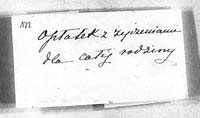 122
Opłatek z życzeniami
dla całej rodziny